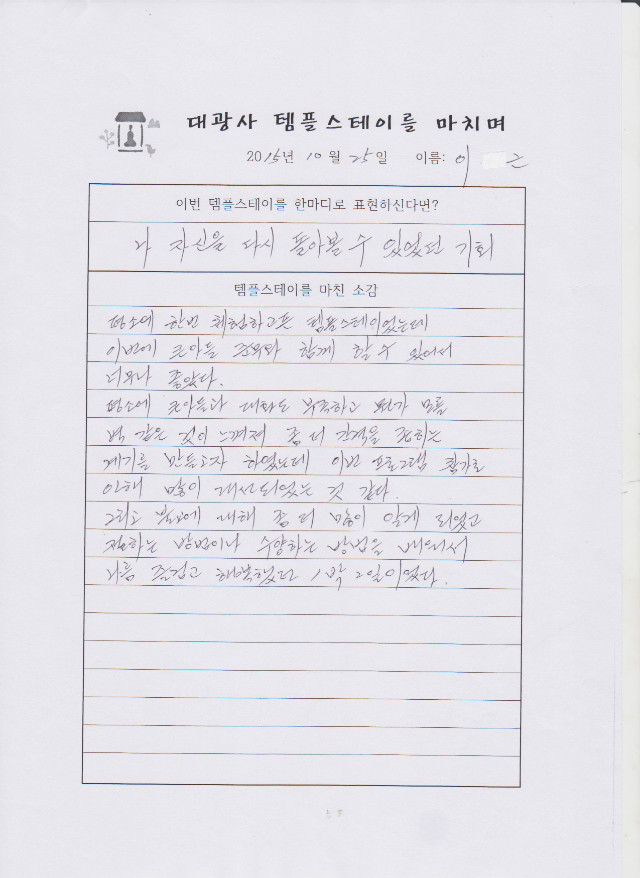 대광사 템플스테이를 마치며
2015년 10월 25일 이름: 이 근
이번 템플스테이를 한마디로 표현하신다면?
나 자신을 다시 돌아볼 수 있었던 기회
템플스테이를 마친 소감
평소에 한번 체험하고픈 템플스테이였는데
이번에 큰아들 과 함께 할 수 있어서
너무나 좋았다.
평소에 큰아들과 대화도 부족하고 뭔가 모를
벽 같은 것이 느껴져 좀 더 간격을 좁히는
계기를 만들고자 하였는데 이번 프로그램 참가로
인해 많이 개선되었는 것 같다.
그리고 불교에 대해 좀 더 많이 알게 되었고
절하는 방법이나 수양하는 방법을 배워서
나름 즐겁고 행복했던 1박 2일이였다.